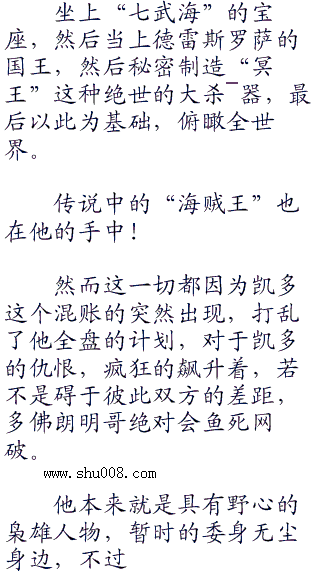 坐上“七武海”的宝
座，然后当上德雷斯罗萨的
国王，然后秘密制造“冥
王”这种绝世的大杀¯器，最
后以此为基础，俯瞰全世
界。
传说中的“海贼王”也
在他的手中！
然而这一切都因为凯多
这个混账的突然出现，打乱
了他全盘的计划，对于凯多
的仇恨，疯狂的飙升着，若
不是碍于彼此双方的差距，
多佛朗明哥绝对会鱼死网
破。
www.shu008.com
他本来就是具有野心的
枭雄人物，暂时的委身无尘
身边，不过